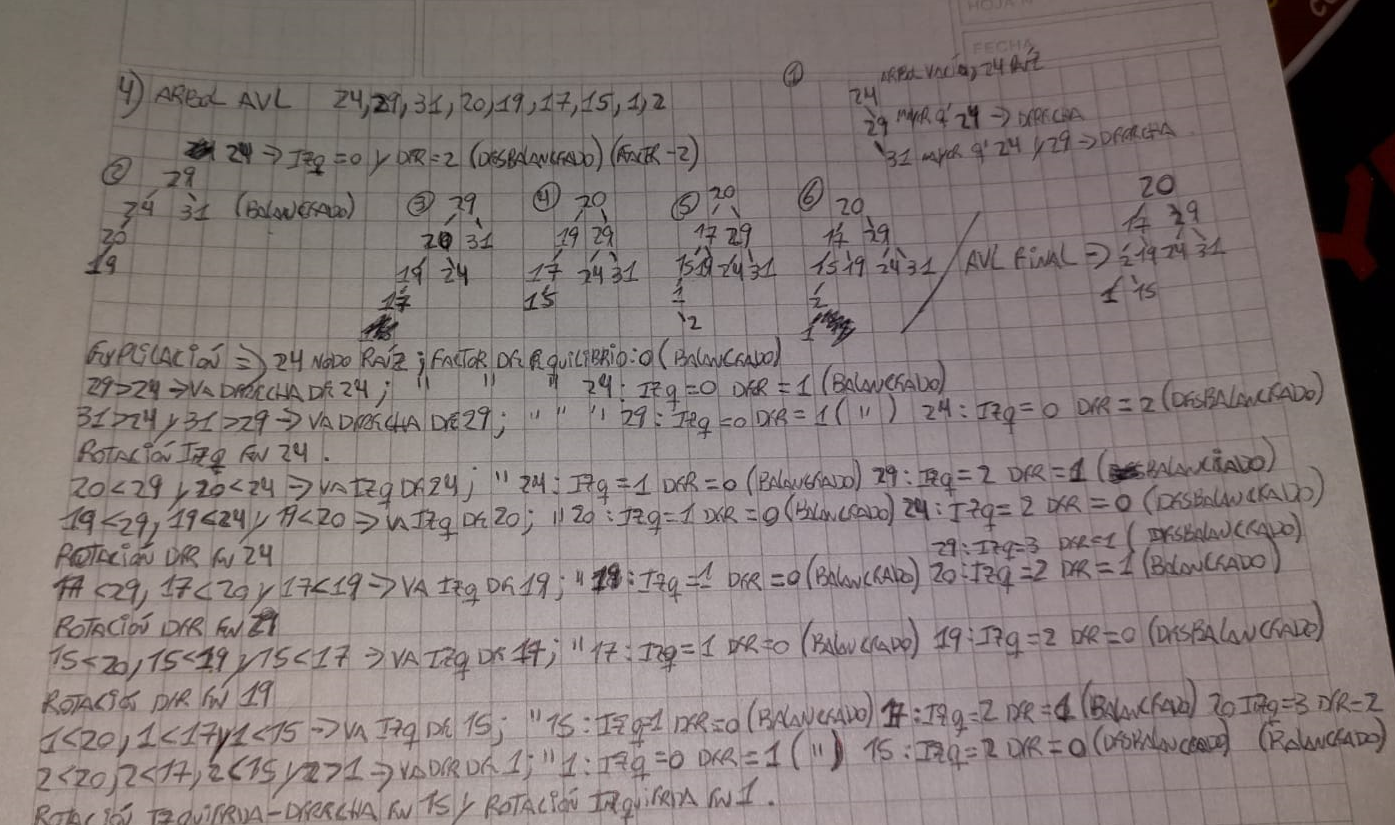 HOJA N
FECHA
4) ARBOL AVL 24, 29, 31, 20, 19, 17, 15, 1, 2
① ARBOL VACÍO, 24 RAÍZ
24
29 MAYOR q' 24 → DERECHA
31 mayor q' 24 y 29 → DERECHA
24 ⇒ Izq = 0 y DER = 2 (DESBALANCEADO) (FACTOR -2)
② 29
24 31 (BALANCEADO)
20
19
③ 29
20 31
19 24
17
④ 20
19 29
17 24 31
15
⑤ 20
17 29
15 19 24 31
1
2
⑥ 20
17 29
15 19 24 31
2
1
AVL FINAL ⇒
20
17 29
2 19 24 31
1 15
EXPLICACIÓN ⇒ 24 NODO RAÍZ ; FACTOR DE EQUILIBRIO: 0 (BALANCEADO)
29>24 → VA DERECHA DE 24; " " " 24: Izq = 0 DER = 1 (BALANCEADO)
31>24 y 31>29 → VA DERECHA DE 29; " " " 29: Izq = 0 DER = 1 (") 24: Izq = 0 DER = 2 (DESBALANCEADO)
ROTACIÓN Izq EN 24.
20<29 y 20<24 ⇒ VA Izq DE 24; " 24: Izq = 1 DER = 0 (BALANCEADO) 29: Izq = 2 DER = 1 (BALANCEADO)
19<29, 19<24 y 19<20 ⇒ VA Izq DE 20; " 20: Izq = 1 DER = 0 (BALANCEADO) 24: Izq = 2 DER = 0 (DESBALANCEADO)
29: Izq = 3 DER = 1 (DESBALANCEADO)
ROTACIÓN DER EN 24
17<29, 17<20 y 17<19 → VA Izq DE 19; " 19: Izq = 1 DER = 0 (BALANCEADO) 20: Izq = 2 DER = 1 (BALANCEADO)
ROTACIÓN DER EN 29
15<20, 15<19 y 15<17 ⇒ VA Izq DE 17; " 17: Izq = 1 DER = 0 (BALANCEADO) 19: Izq = 2 DER = 0 (DESBALANCEADO)
ROTACIÓN DER EN 19
1<20, 1<17 y 1<15 → VA Izq DE 15; " 15: Izq = 1 DER = 0 (BALANCEADO) 17: Izq = 2 DER = 1 (BALANCEADO) 20 Izq = 3 DER = 2
(BALANCEADO)
2<20, 2<17, 2<15 y 2>1 ⇒ VA DER DE 1; " 1: Izq = 0 DER = 1 (") 15: Izq = 2 DER = 0 (DESBALANCEADO)
ROTACIÓN IZQUIERDA-DERECHA EN 15 y ROTACIÓN IZQUIERDA EN 1.